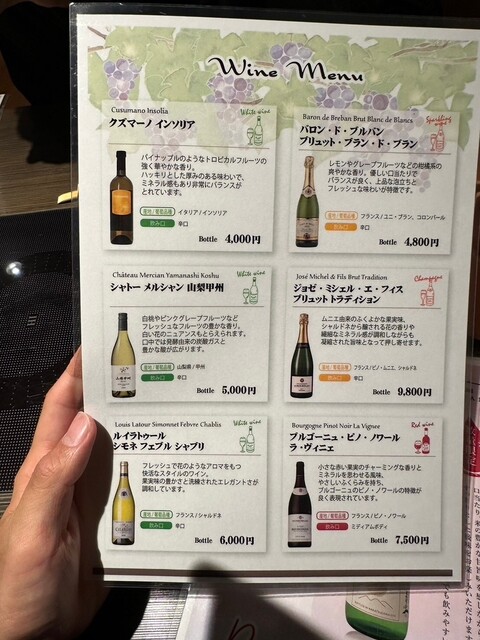 Wine Menu
Cusumano Insolia
White wine
クズマーノ インソリア
パイナップルのようなトロピカルフルーツの
強く華やかな香り。
ハッキリとした厚みのある味わいで、
ミネラル感もあり非常にバランスが
とれています。
産地/葡萄品種 イタリア/インソリア
飲み口 辛口
Bottle 4,000円
Baron de Breban Brut Blanc de Blancs
Sparkling wine
バロン・ド・ブルバン
ブリュット・ブラン・ド・ブラン
レモンやグレープフルーツなどの柑橘系の
爽やかな香り。優しい口当たりで
バランスが良く、上品な泡立ちと
フレッシュな味わいが特徴です。
産地/葡萄品種 フランス/ユニ・ブラン、コロンバール
飲み口 辛口
Bottle 4,800円
Château Mercian Yamanashi Koshu
White wine
シャトー メルシャン 山梨甲州
白桃やピンクグレープフルーツなど
フレッシュなフルーツの豊かな香り。
白い花のニュアンスもとらえられます。
口中では発酵由来の炭酸ガスと
豊かな酸が広がります。
産地/葡萄品種 山梨県/甲州
飲み口 辛口
Bottle 5,000円
José Michel & Fils Brut Tradition
Champagne
ジョゼ・ミシェル・エ・フィス
ブリュット トラディション
ムニエ由来のふくよかな果実味、
シャルドネから醸される花の香りや
繊細なミネラル感が調和しながらも
凝縮された旨味となって押し寄せます。
産地/葡萄品種 フランス/ピノ・ムニエ、シャルドネ
飲み口 辛口
Bottle 9,800円
Louis Latour Simonnet Febvre Chablis
White wine
ルイラトゥール
シモネ フェブル シャブリ
フレッシュで花のようなアロマをもつ
快活なスタイルのワイン。
果実味の豊かさと洗練されたエレガントさが
調和しています。
産地/葡萄品種 フランス/シャルドネ
飲み口 辛口
Bottle 6,000円
Bourgogne Pinot Noir La Vignee
Red wine
ブルゴーニュ・ピノ・ノワール
ラ・ヴィニェ
小さな赤い果実のチャーミングな香りと
ミネラルを思わせる風味、
やさしいふくらみを持ち、
ブルゴーニュのピノ・ノワールの特徴が
良く表現されています。
産地/葡萄品種 フランス/ピノ・ノワール
飲み口 ミディアムボディ
Bottle 7,500円